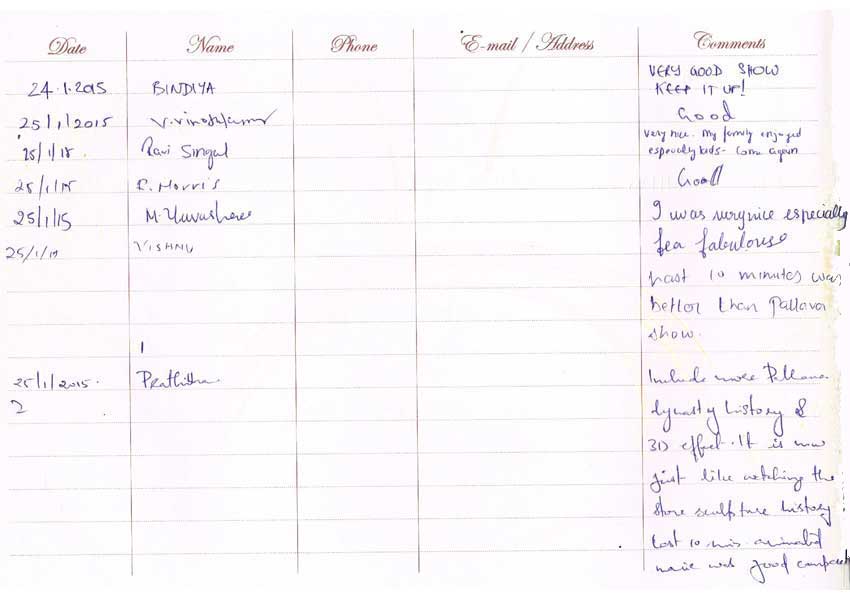 Date Name Phone E-mail / Address Comments
24.1.2015 BINDIYA VERY GOOD SHOW
KEEP IT UP!
25/1/2015 V. Vinothkumar Good
25/1/15 Ravi Singal Very nice. My family enjoyed
especially kids- Come again
25/1/15 Morris Good
25/1/15 M. I was very nice especially
25/1/15 VISHNU fabulous
Last 10 minutes was
better than Pallava
show.
25/1/2015. Prathitha Include more Pallava
2 dynasty history &
3D effect. It is now
just like watching the
stone sculpture history
Last 10 mis animated
was good